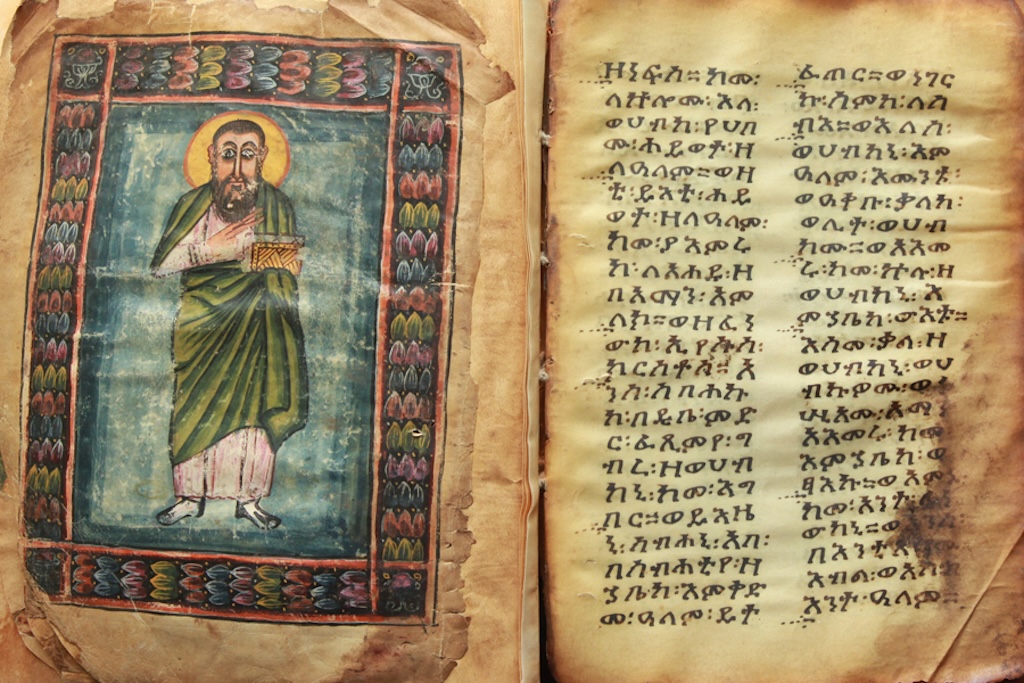 ዘነፍስ። ከመ፡
ለኵሎሙ፡ እለ፡
ወሀብከ፡ የሀበ
ሙ፡ ሕይወተ፡ ዘ
ለዓለም። ወዛ
ቲ፡ ይእቲ፡ ሕይ
ወት፡ ዘለዓለም፡
ከመ፡ ያእምሩ
ከ፡ ለአሐዱ፡ ዘ
በአማን፡ አም
ላክ። ወዘፈነ
ውከ፡ ኢየሱስ፡
ክርስቶስ። አ
ንሰ፡ ሰባሕኩ
ከ፡ በዲበ፡ ምድ
ር፡ ፈጺምየ፡ ግ
ብረ፡ ዘወሀብ
ከኒ፡ ከመ፡ እግ
በር። ወይእዜ
ኒ፡ ሰብሐኒ፡ አባ፡
በስብሐቲየ፡ ዘ
ኀቤከ፡ እምቅድ
መ፡ ዓለም፡ ይት
ፈጠር። ወነገር
ኩ፡ ስምከ፡ ለሰ
ብእ። ወእለሰ፡
ወሀብከኒ፡ እም
ዓለም፡ እሙንቱ፡
ወዓቀቡ፡ ቃለከ፡
ወሊተ፡ ወሀብ
ከሙ። ወአእመ
ሩ፡ ከመ፡ ኵሉ፡ ዘ
ወሀብከኒ፡ እ
ምኀቤከ፡ ውእቱ።
እስመ፡ ቃለ፡ ዘ
ወሀብከኒ፡ ወሀ
አማን
አእመሩ፡ ከመ
እምኀቤከ፡ ወ
ፃእኩ። ወአም
ከመ፡ አንተ፡
ውከኒ።
በእንተ
እብል፡
እንተ፡ ዓለም።